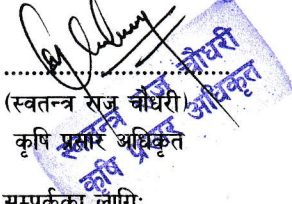 ....................................
(स्वतन्त्र राज चौधरी)
कृषि प्रसार अधिकृत
स्वतन्त्र राज चौधरी
कृषि प्रसार अधिकृत
सम्पर्कका लागिः